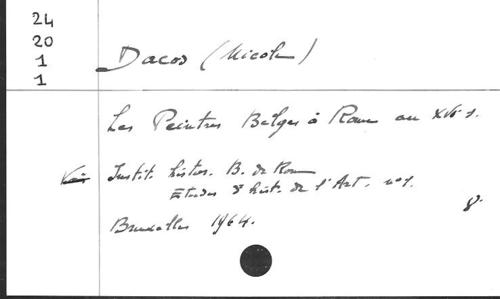 24
20
1
1
Dacos (Nicole)
Les Peintres Belges à Rome au XVIe s.
Voir Instit. histor. B. de Rome
Etudes d'hist. de l'Art. n°1.
8°
Bruxelles 1964.